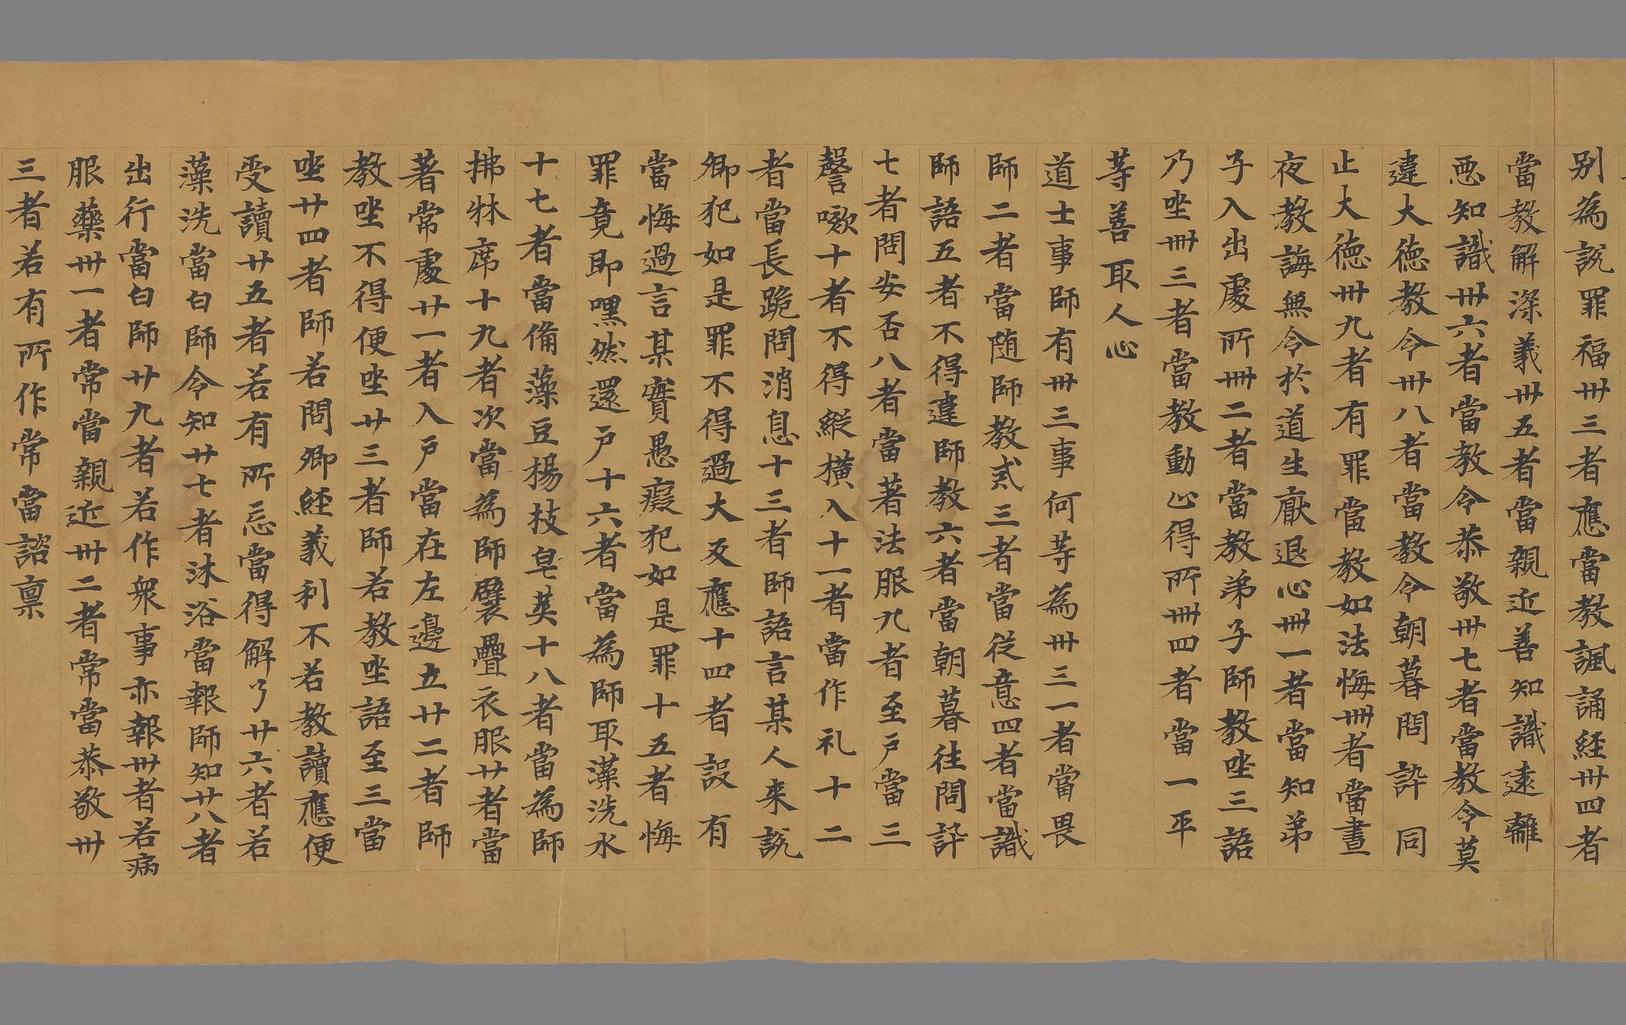 別為説罪福卅三者應當教諷誦経卅四者
當教解深義卅五者當親近善知識遠離
惡知識卅六者當教令恭敬卅七者當教令莫
違大徳教令卅八者當教令朝暮問訙同
止大徳卅九者有罪當教如法悔卌者當晝
夜教誨無令於道生猒退心卌一者當知弟
子入出處所卌二者當教弟子師教唑三語
乃唑卌三者當教動心得所卌四者當一平
等善取人心
道士事師有卅三事何等為卅三一者當畏
師二者當随師教式三者當従意四者當識
師語五者不得違師教六者當朝暮往問訙
七者問安否八者當著法服九者至戸當三
謦嗽十者不得縦横入十一者當作礼十二
者當長跪問消息十三者師語言某人来説
卿犯如是罪不得過大反應十四者設有
當悔過言某實愚癡犯如是罪十五者悔
罪竟即嘿然還戸十六者當為師取藻洗水
十七者當備藻豆楊枝皂莢十八者當為師
拂牀席十九者次當為師襞疊衣服廿者當
著常處廿一者入戸當在左邊立廿二者師
教唑不得便唑廿三者師若教唑語至三當
唑廿四者師若問卿経義利不若教讀應便
受讀廿五者若有所忘當得解了廿六者若
藻洗當白師令知廿七者沐浴當報師知廿八者
出行當白師廿九者若作衆事亦報卅者若病
服藥卅一者常當親近卅二者常當恭敬卅
三者若有所作常當諮禀